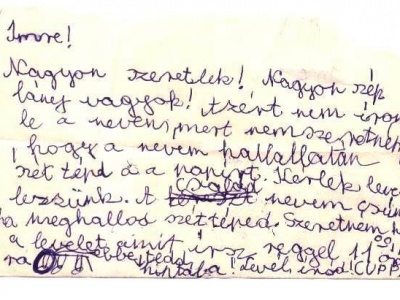 Imre!
Nagyon szeretlek! Nagyon szép
lány vagyok! Azért nem írom
le a nevem, mert nem szeretném
hogy a nevem hallatán
szét tépd a papírt. Kérlek leve
család
lesszünk. A nevem csún
ha meghallod szettéped. Szeretném h
a levelet amit írsz reggel 11
ra tedd
hintába! Levelsirod! CUPP